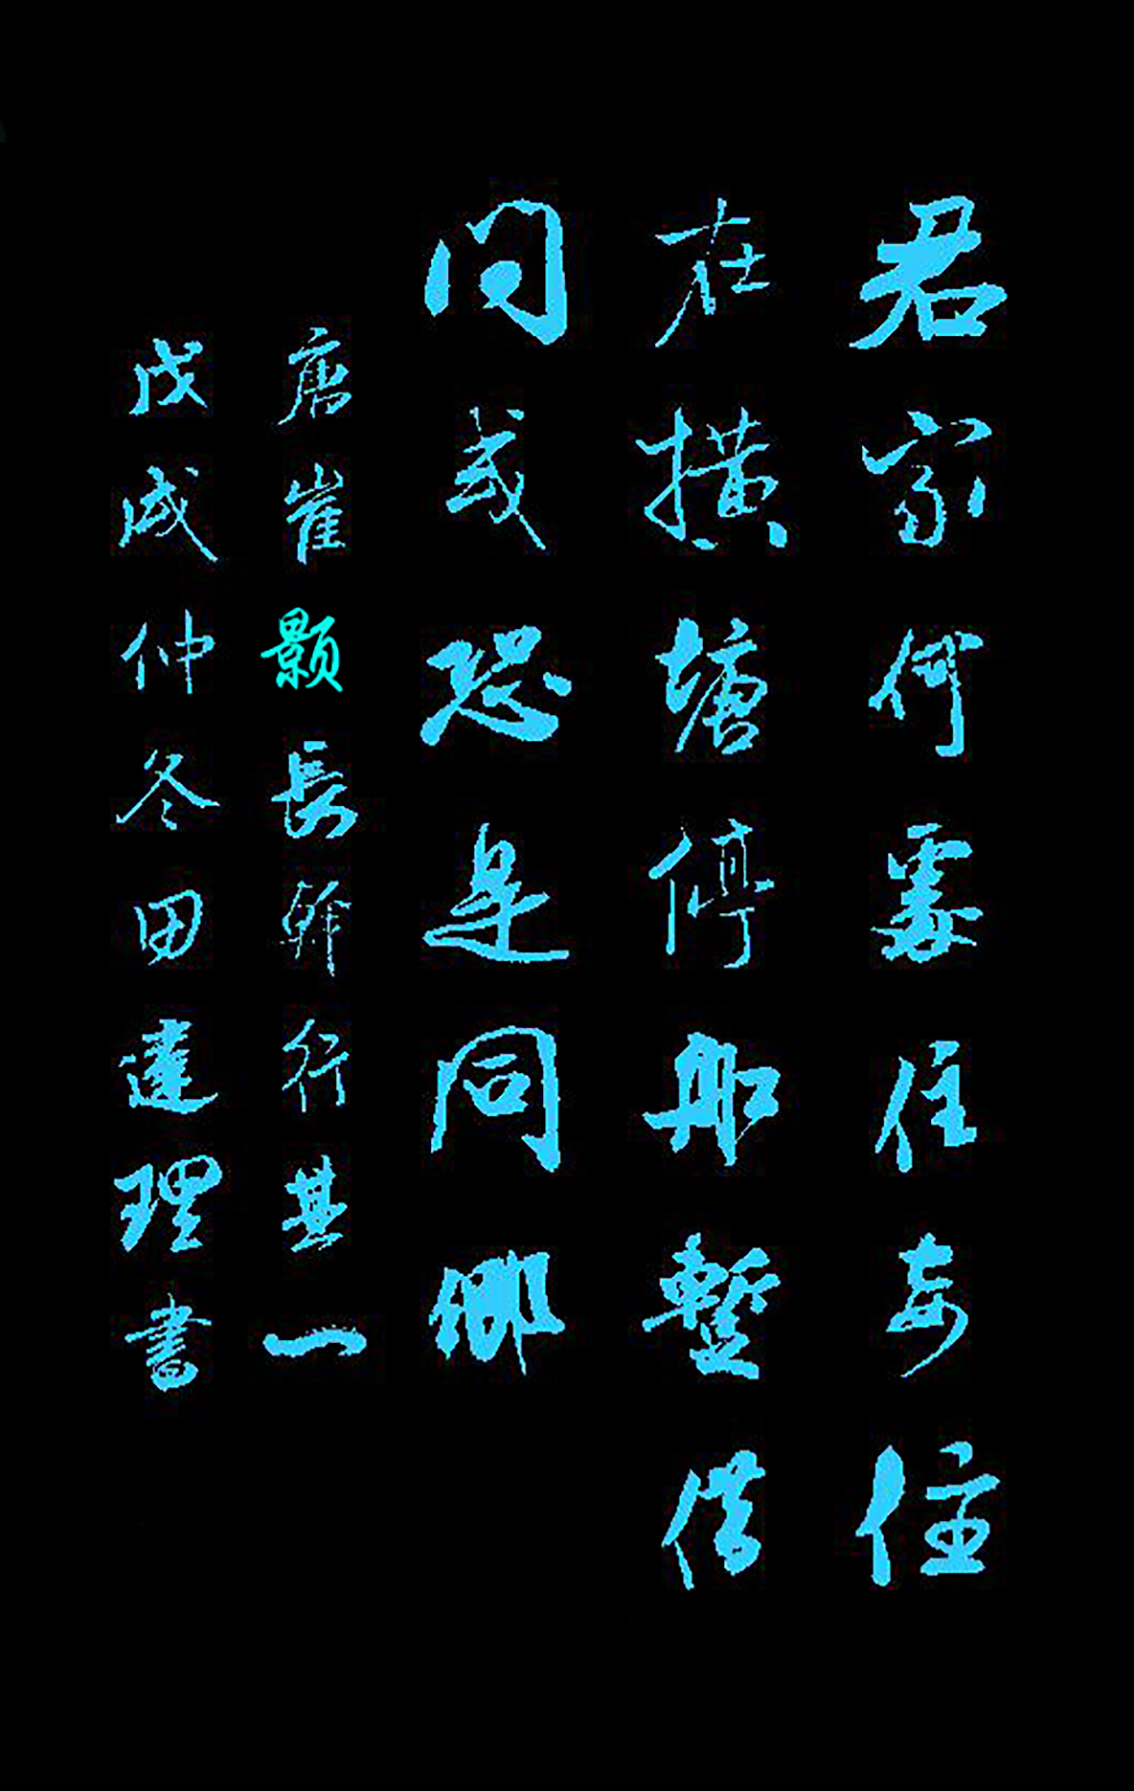 君家何處住妾住
在橫塘停船暫借
問或恐是同鄉
唐崔颢長幹行基一
戊戌仲冬田達理書